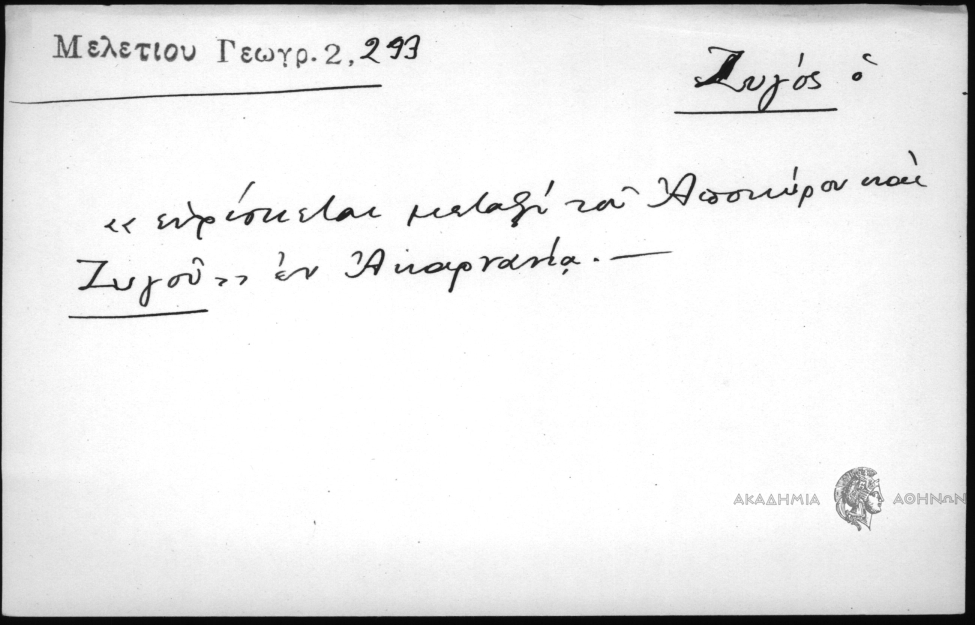 Μελετίου Γεωγρ. 2, 293
Ζυγός ὁ
«εὑρίσκεται μεταξύ τοῦ Ἀποκύρου καὶ
Ζυγοῦ» ἐν Ἀκαρνανίᾳ. —
ΑΚΑΔΗΜΙΑ ΑΘΗΝΩΝ